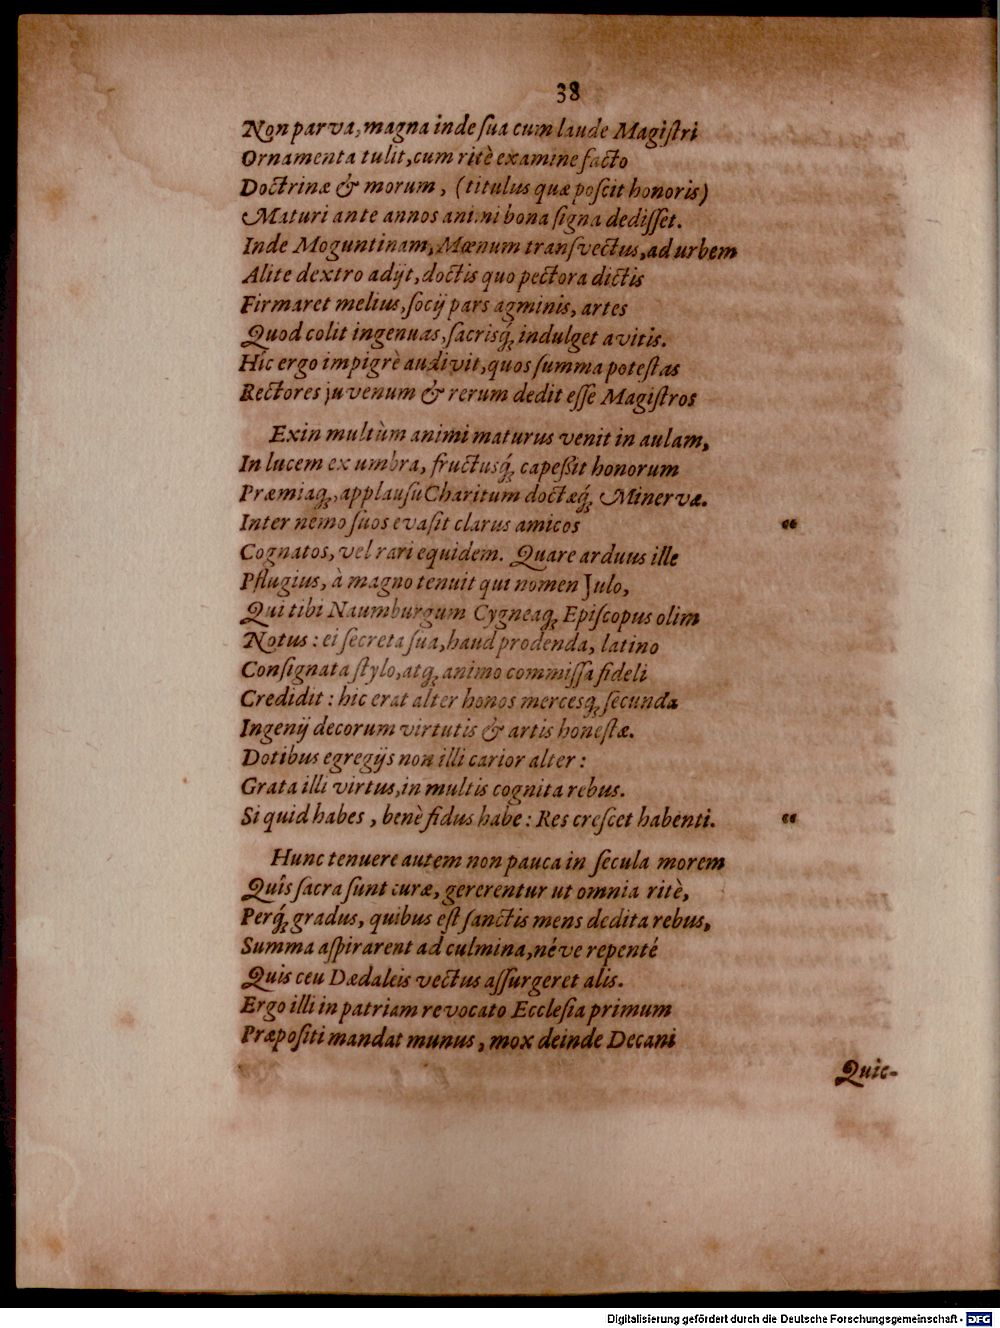 38
Non parva, magna inde sua cum laude Magistri
Ornamenta tulit, cum ritè examine facto
Doctrinæ & morum, (titulus quæ poscit honoris)
Maturi ante annos animi bona signa dedisset.
Inde Moguntinam, Mœnum transvectus, ad urbem
Alite dextro adijt, doctis quo pectora dictis
Firmaret melius, socij pars agminis, artes
Quod colit ingenuas, sacrisq́; indulget avitis.
Hic ergo impigrè audivit, quos summa potestas
Rectores juvenum & rerum dedit esse Magistros
Exin multùm animi maturus venit in aulam,
In lucem ex umbra, fructusq́; capeßit honorum
Præmiaq;, applausu Charitum doctæq́; Minervæ.
Inter nemo suos evasit clarus amicos “
Cognatos, vel rari equidem. Quare arduus ille
Pflugius, à magno tenuit qui nomen Julo,
Qui tibi Naumburgum Cygneaq; Episcopus olim
Notus: ei secreta sua, haud prodenda, latino
Consignata stylo, atq; animo commissa fideli
Credidit: hic erat alter honos mercesq; secunda
Ingenij decorum virtutis & artis honestæ.
Dotibus egregijs non illi carior alter:
Grata illi virtus, in multis cognita rebus.
Si quid habes, benè fidus habe: Res crescet habenti. “
Hunc tenuere autem non pauca in secula morem
Quîs sacra sunt curæ, gererentur ut omnia ritè,
Perq́; gradus, quibus est sanctis mens dedita rebus,
Summa aspirarent ad culmina, néve repenté
Quis ceu Dædaleis vectus assurgeret alis.
Ergo illi in patriam revocato Ecclesia primum
Præpositi mandat munus, mox deinde Decani
Quic-
Digitalisierung gefördert durch die Deutsche Forschungsgemeinschaft - DFG